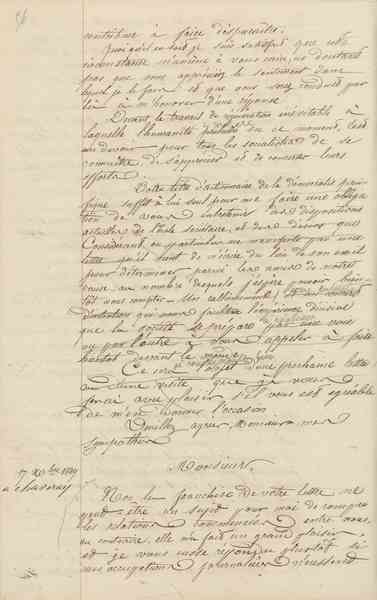 contribuer à faire disparaître.
Quoi qu'il en soit je suis satisfait que cette
circonstance m'amène à vous écrire, ne doutant
pas que vous apprécierez le sentiment dans
lequel je le fais et que vous voudrez par
là m'honorer d'une réponse.
Devant le travail de rénovation inévitable à
laquelle l'humanité dès ce moment, c'est
un devoir pour tous les socialistes de se
connaître, de s'apprécier et de concerter leurs
efforts.
Votre titre d'actionnaire de la démocratie paci-
fique suffit à lui seul pour me faire une obliga-
tion de vous entretenir des dispositions
actuelles de l'école sociétaire, et des désirs que
Considerant, en particulier me manifeste par une
lettre qu'il vient de m'écrire du lieu de son exil
pour déterminer parmi les amis de notre
cause au nombre desquels j'espère pouvoir bien-
tôt vous compter
d'intention qui nous facilite l'expérience décisive
que la société se prépare par une voie
ou par l'autre à nous appeler à faire
bientôt devant le même
Ce sera l'objet d'une prochaine lettre
ou d'une visite que je vous
ferai avec plaisir, s'il vous est agréable
de m'en donner l'occasion
Veuillez agréer, Monsieur, mes
sympathies
Monsieur,
17 Xbre 1849
à
Non la franchise de votre lettre ne
peut être un sujet pour moi de rompre
les relations commencées entre nous,
au contraire, elle m'a fait un grand plaisir,
et je vous eusse répondu plustôt si
mes occupations journalières n'eussent